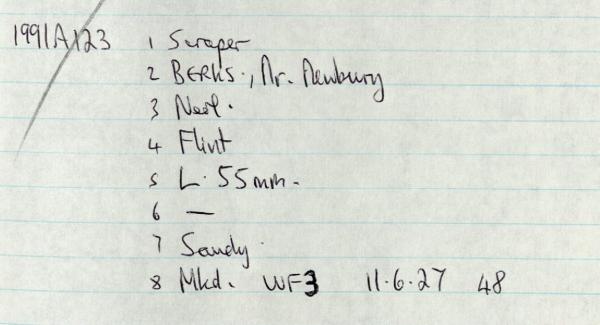 1991A123 1 Scraper
2 BERKS., Nr. Newbury
3 Neol.
4 Flint
5 L. 55mm.
6 —
7 Sandy.
8 Mkd. WF3 11.6.27 48